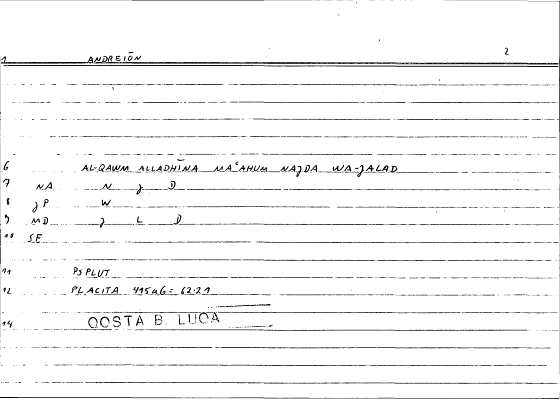 2
1 ANDREIŌN
6 AL-QAWM ALLADHĪNA MAʿAHUM NAJDA WA-JALAD
7 NA N J D
8 JP W
9 MD J L D
10 SE
11 PSPLUT
12 PLACITA 415a6 = 62.21
14 QOSTA B. LUCA